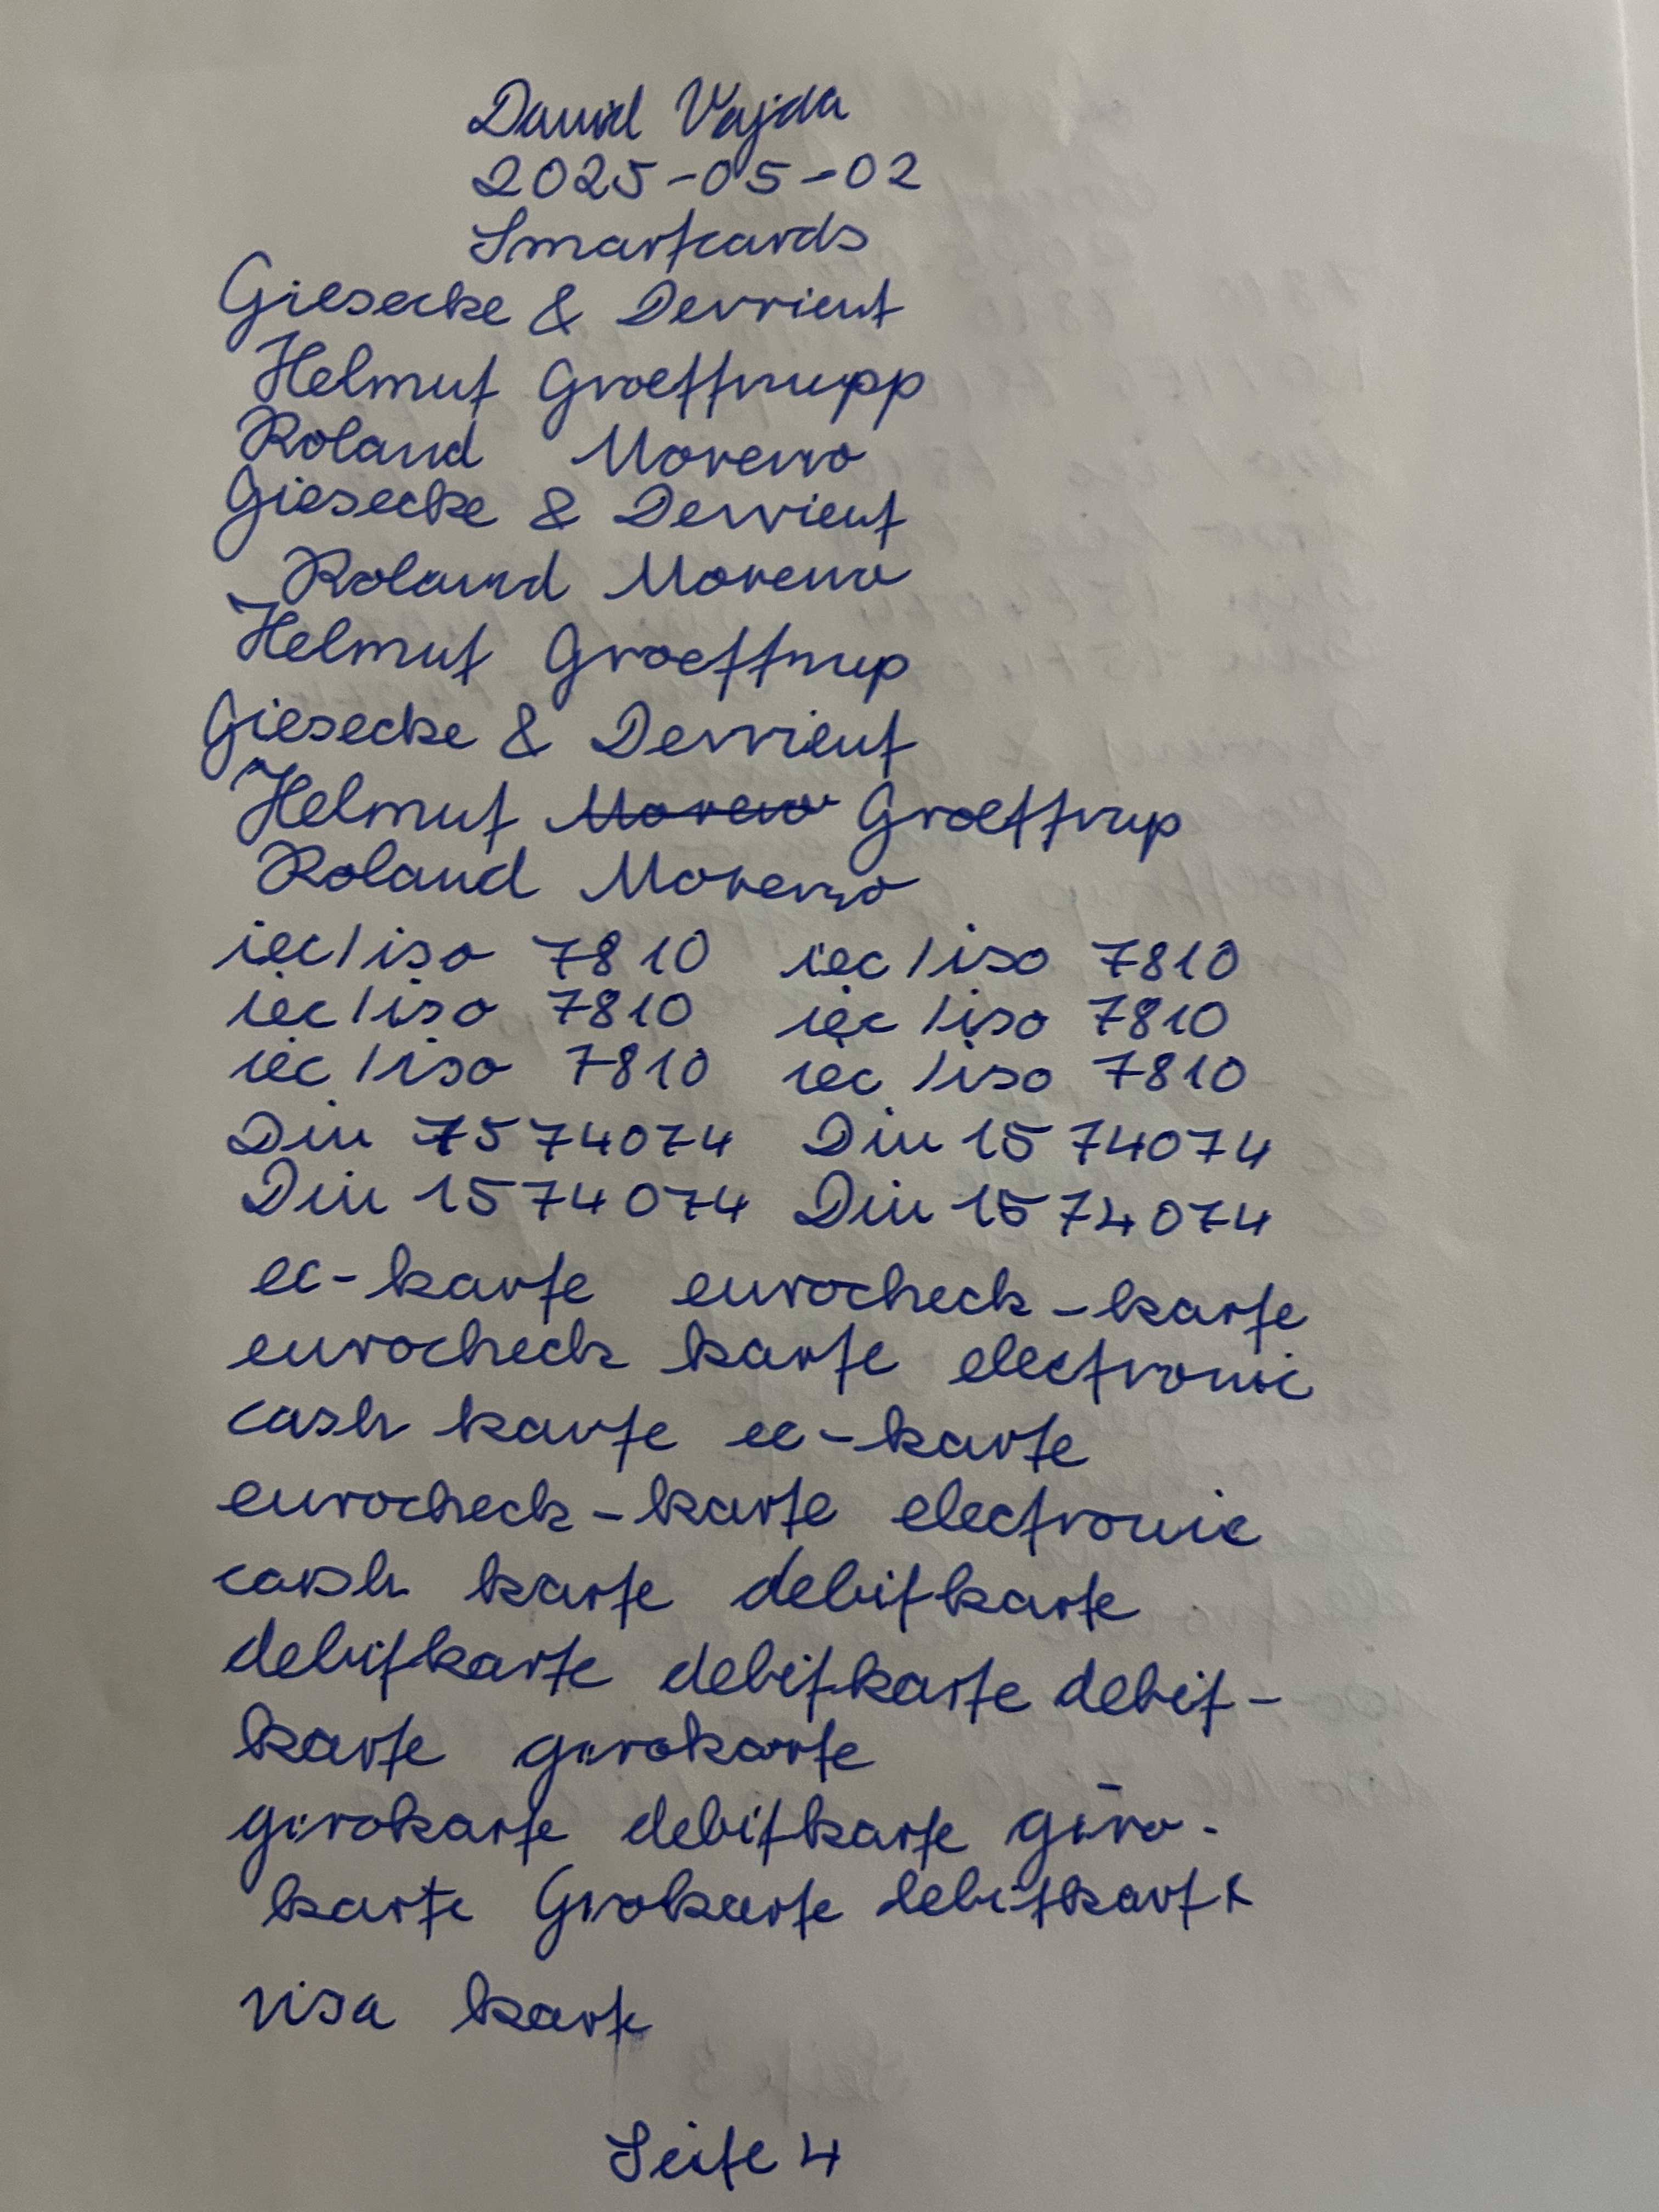 David Vajda
2025-05-02
Smartcards
Giesecke & Devrient
Helmut Groettrupp
Roland Moreno
Giesecke & Devrient
Roland Moreno
Helmut Groettrup
Giesecke & Devrient
Helmut Moreno Groettrup
Roland Moreno
iec/iso 7810 iec/iso 7810
iec/iso 7810 iec/iso 7810
iec/iso 7810 iec/iso 7810
Din 1574074 Din 1574074
Din 1574074 Din 1574074
ec-karte eurocheck-karte
eurocheck karte electronic
cash karte ec-karte
eurocheck-karte electronic
cash karte debitkarte
debitkarte debitkarte debit-
karte girokarte
girokarte debitkarte giro-
karte Girokarte debitkarte
visa karte
Seite 4